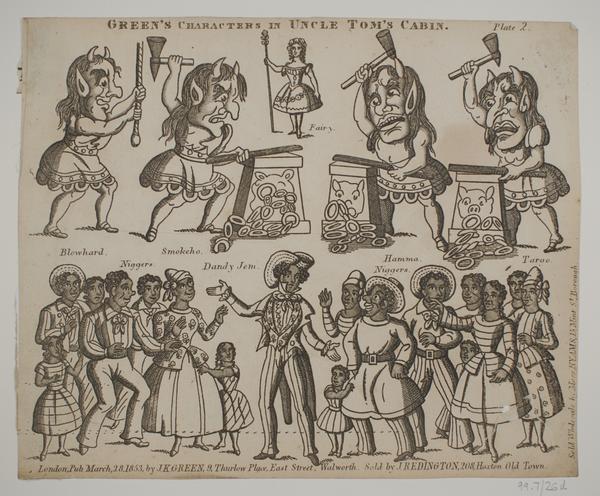 GREEN'S CHARACTERS IN UNCLE TOM'S CABIN. Plate 2.
Fairy.
Blowhard. Smokeho. Hamma. Taroo.
Niggers. Dandy Jem. Niggers.
London, Pub March, 28, 1853, by J.K. GREEN, 9, Thurlow Place, East Street, Walworth. Sold by J. REDINGTON, 208, Hoxton Old Town.
Sold Wholesale by Mint St. Borough
99.7/26d